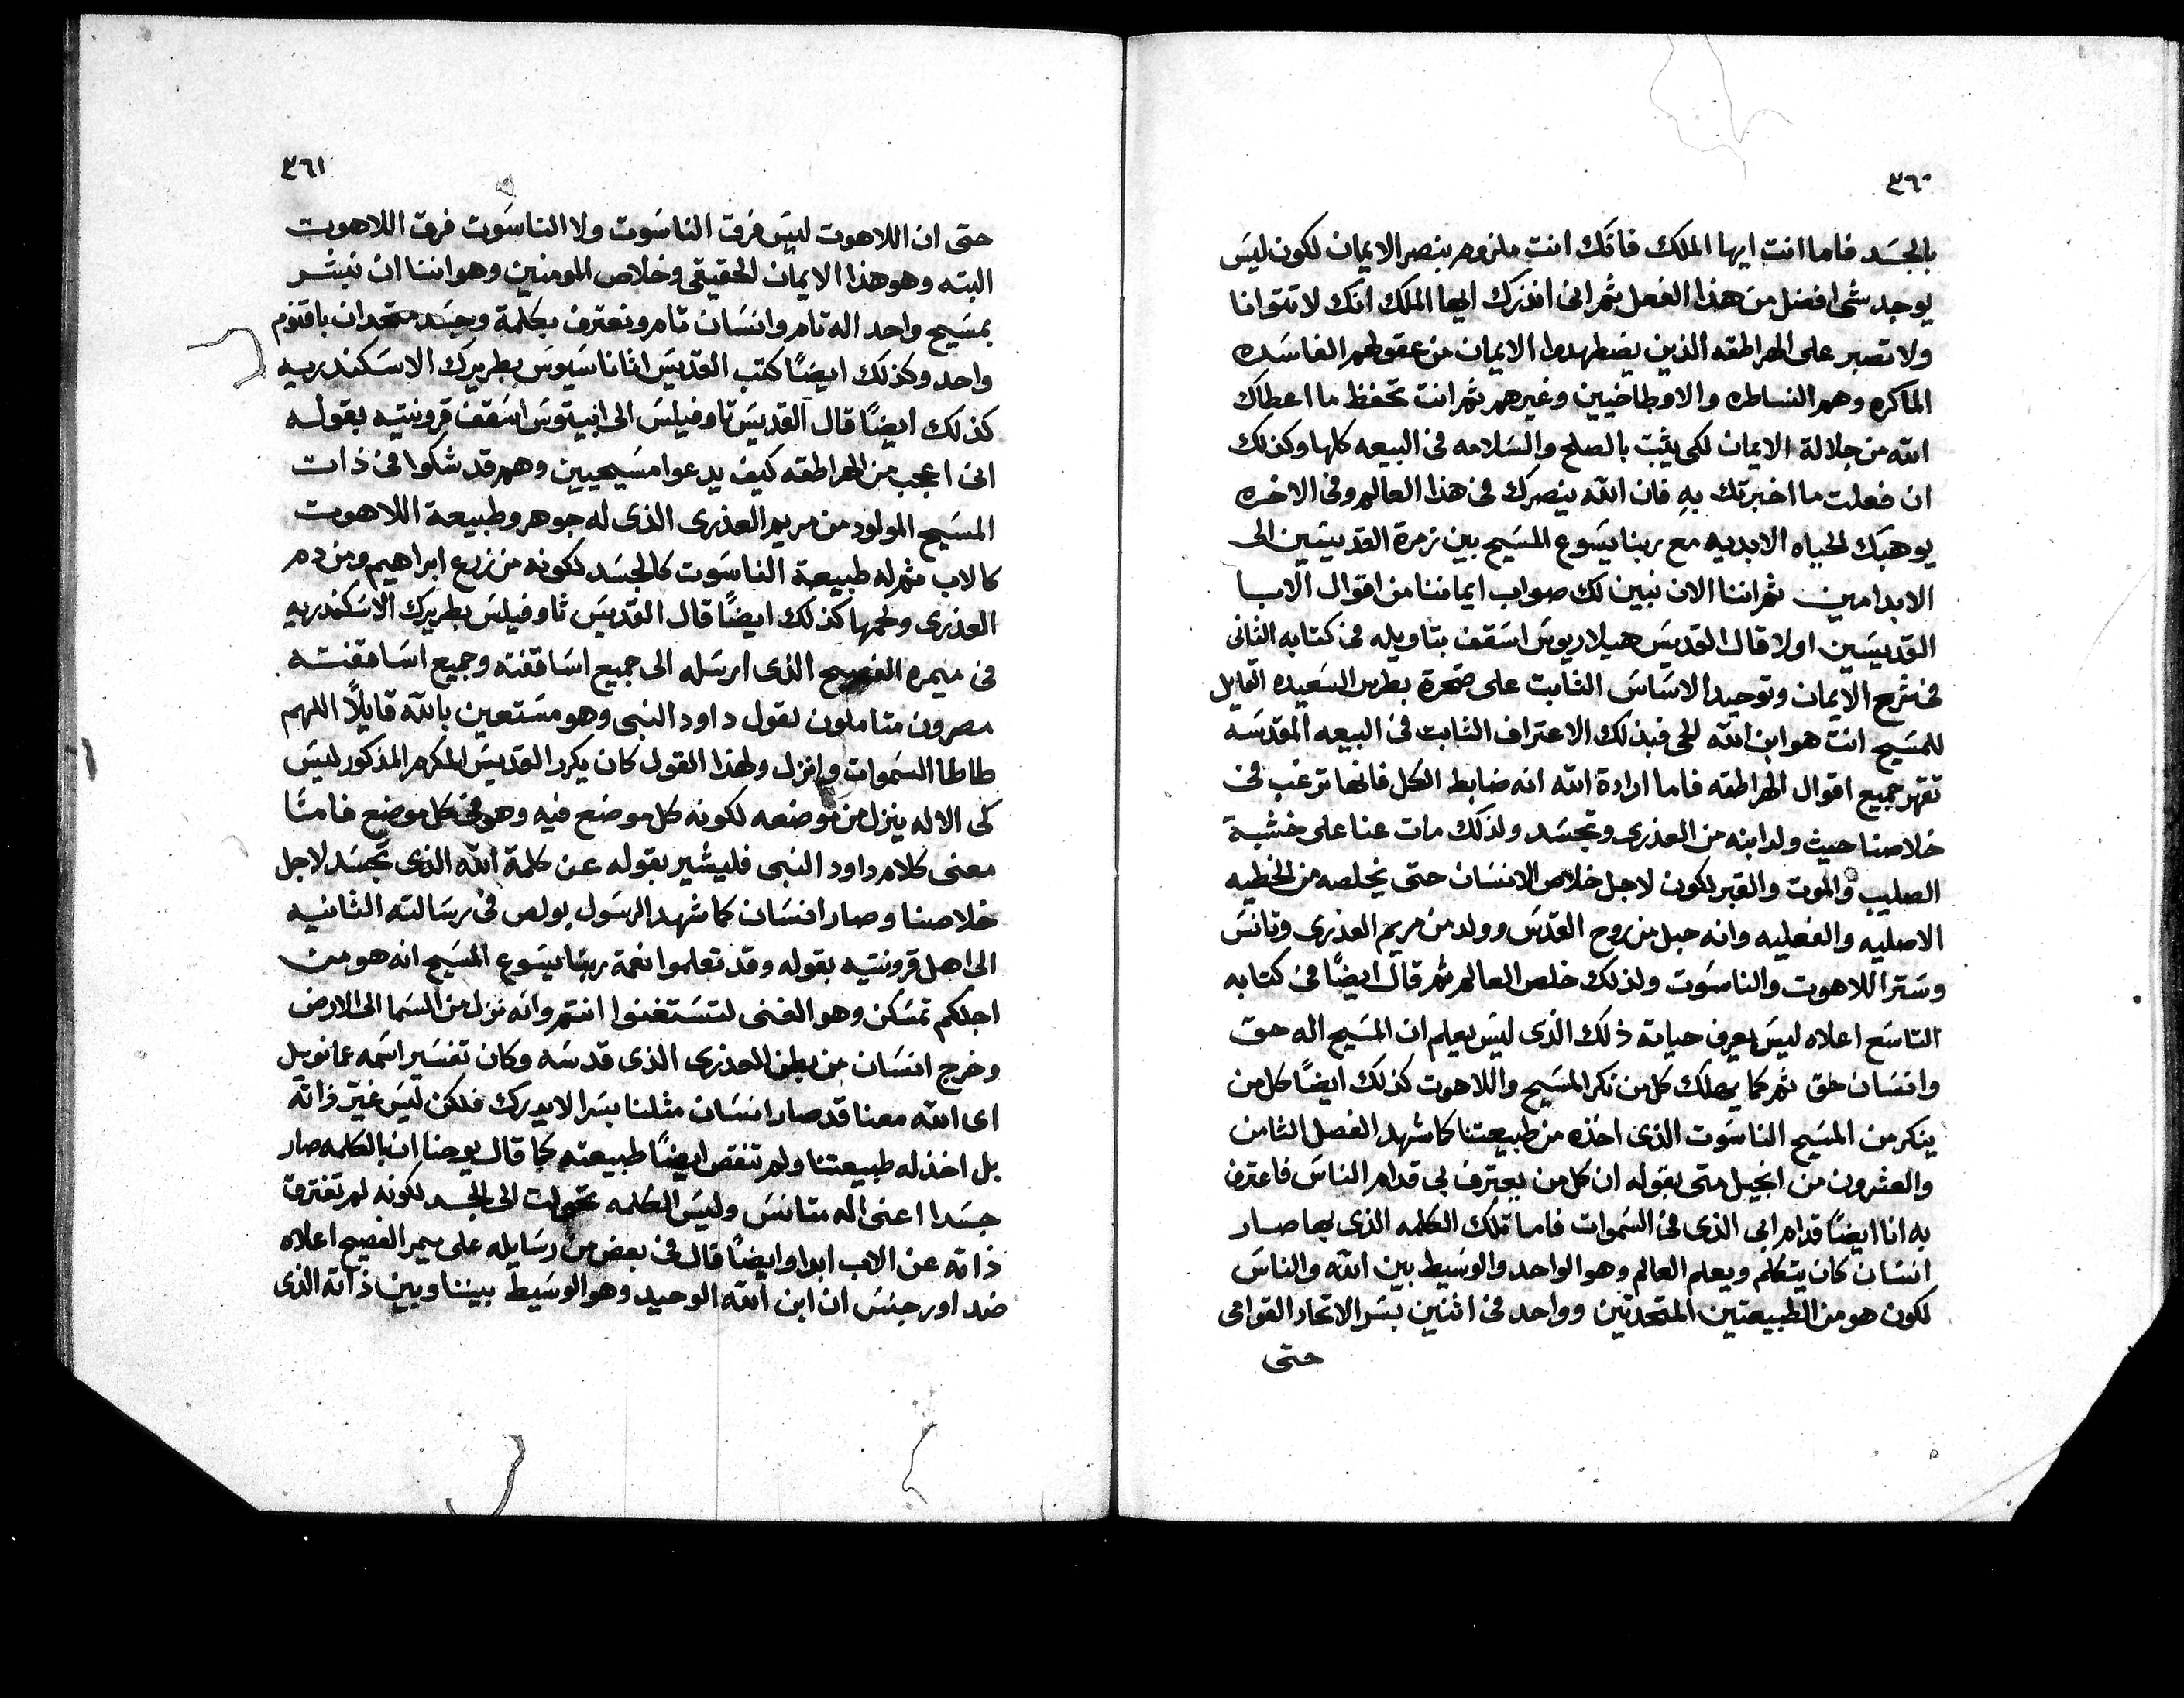 ٣٦٠
بالجسَد فاما انت ايها الملك فانك انت ملزوم بنصر الايمان لكون ليسَ
يوجد شى افضل من هذا الفعل ثم انى انذرك ايها الملك انك لا تتوانا
ولا تصبر على الهراطقه الذين يضطهدوا الايمان من عقولهم الفاسَده
الماكره وهم النساطره والاوطاخيين وغيرهم ثم انت تحفظ ما اعطاك
الله من جلالة الايمان لكى يثبت بالصلح والسَلامه فى البيعه كلها وكذلك
ان فعلت ما اخبرتك بهِ فان الله ينصرك فى هذا العالم وفى الاخره
يوهبك الحياه الابديه مع ربنا يسَوع المسَيح بين زمرة القديسَين الى
الابد امين ثم اننا الان نبين لك صواب ايماننا من اقوال الابا
القديسَين اولا قال القديسَ هيلاريوسَ اسَقف بتاويله فى كتابه الثانى
فى شرح الايمان وتوحيد الاسَاسَ الثابت على صخرة بطرس السَعيده القايل
للمسَيح انت هو ابن الله الحى فبذلك الاعتراف الثابت فى البيعه المقدسَه
تقهر جميع اقوال الهراطقه فاما ارادة الله انه ضابط الكل فانها ترغب فى
خلاصنا حيث ولد ابنه من العذرى وتجسَد ولذلك مات عنا على خشبة
الصليب والموت والقبر لكون لاجل خلاص الانسَان حتى يخلصه من الخطيه
الاصليه والفعليه وانه حبل من روح القدسَ وولد من مريم العذرى وتانسَ
وسَتر اللاهوت والناسَوت ولذلك خلص العالم ثم قال ايضًا فى كتابه
التاسَع اعلاه ليسَ يعرف حياته ذلك الذى ليسَ يعلم ان المسَيح اله حق
وانسَان حق ثم كما يهلك كل من نكر المسَيح واللاهوت كذلك ايضًا كل من
ينكر من المسَيح الناسَوت الذى اخذه من طبيعتنا كما شهد الفصل الثامن
والعشرون من انجيل متى بقوله ان كل من يعترف بى قدام الناسَ فاعترف
به انا ايضًا قدام ابى الذى فى السَموات فاما تلك الكلمه الذى بها صار
انسَان كان يتكلم ويعلم العالم وهو الواحد والوسَيط بين الله والناسَ
لكون هو من الطبيعتين المتحدتين وواحد فى اثنين بسَر الاتحاد القوامى
حتى
٣٦١
حتى ان اللاهوت ليسَ فرق الناسَوت ولا الناسَوت فرق اللاهوت
البته وهو هذا الايمان الحقيقى وخلاص المومنين وهو اننا ان نبشر
بمسَيح واحد اله تام وانسَان تام ونعترف بكلمة وجسَد متحدان باقنوم
واحد وكذلك ايضًا كتب القديسَ اثاناسَيوسَ بطريرك الاسَكندريه
كذلك ايضًا قال القديسَ تاوفيلسَ الى ابيتوسَ اسَقف قرونتيه بقوله
انى اعجب من الهراطقه كيف يدعوا مسَيحيين وهم قد شكوا فى ذات
المسَيح المولود من مريم العذرى الذى له جوهر وطبيعة اللاهوت
كالاب ثم له طبيعة الناسَوت كالجسَد لكونه من زرع ابراهيم ومن دم
العذرى ولحمها كذلك ايضًا قال القديسَ ثاوفيلسَ بطريرك الاسَكندريه
فى ميمره الفصيح الذى ارسَله الى جميع اسَاقفته وجميع اسَاقفته
مصرون متاملون لقول داود النبى وهو مسَتعين بالله قايلًا اللهم
طاطا السَموات وانزل ولهذا القول كان يكرر القديسَ المكرم المذكور ليسَ
كى الاله ينزل من موضعه لكونه كل موضع فيه وهو فى كل موضع فامتا
معنى كلام داود النبى فليشير بقوله عن كلمة الله الذى تجسَد لاجل
خلاصنا وصار انسَان كما شهد الرسَول بولص فى رسَالته الثانيه
الى اهل قرونتيه بقوله وقد تعلموا نعمة ربنا يسَوع المسَيح انه هو من
اجلكم تمسَكن وهو الغنى لتسَتغنوا انتم وانه نزل من السَما الى الارض
وخرج انسَان من بطن العذرى الذى قدسَه وكان تفسَير اسَمه عمانويل
اى الله معنا قد صار انسَان مثلنا بسَر لا يدرك فلكن ليسَ غيّر ذاته
بل اخذ له طبيعتنا ولم تنقص ايضًا طبيعته كما قال يوحنا ان بالكلمه صار
جسَدا اعنى اله متانسَ وليسَ الكلمه تحولت الى الجسد لكونه لم تفترق
ذاته عن الاب ابدا وايضًا قال فى بعض من رسَايله على ميمر الفصيح اعلاه
ضد اورجنسَ ان ابن الله الوحيد وهو الوسَيط بيننا وبين ذاته الذى